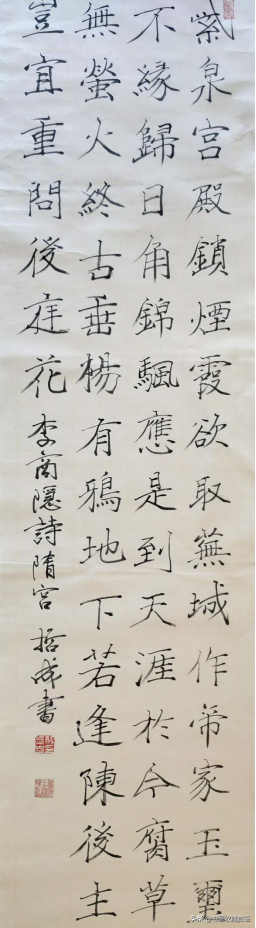 紫泉宮殿鎖煙霞欲取蕪城作帝家玉璽
不緣歸日角錦颿應是到天涯於今腐草
無螢火終古垂楊有鴉地下若逢陳後主
豈宜重問後庭花 李商隱詩隋宮 哲成書